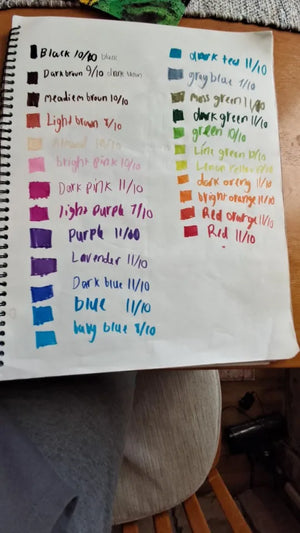 Black 10/10 black
Dark brown 9/10 dark brown
Meadiem brown 10/10
Light brown 8/10
Almond 10/10
bright pink 10/10
Dark pink 11/10
light purple 7/10
Purple 11/10
Lavender 11/10
Dark blue 11/10
blue 11/10
baby blue 8/10
dark teal 11/10
gray blue 7/10
Moss green 11/10
dark green 11/10
green 10/10
Lime green 10/10
Lemon yellow
dark oreng 11/10
bright orange 11/10
Red orange 11/10
Red 11/10